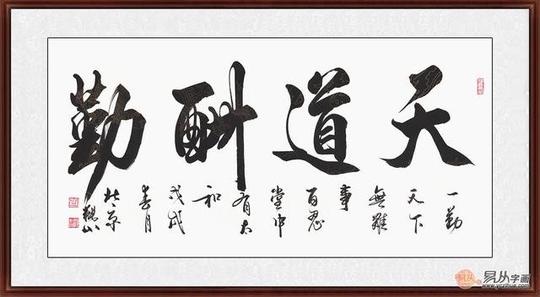 天道酬勤
一勤
天下
無難
事
百忍
堂中
有太
和
戊戌
春月
北京
易从字画
www.yczihua.com